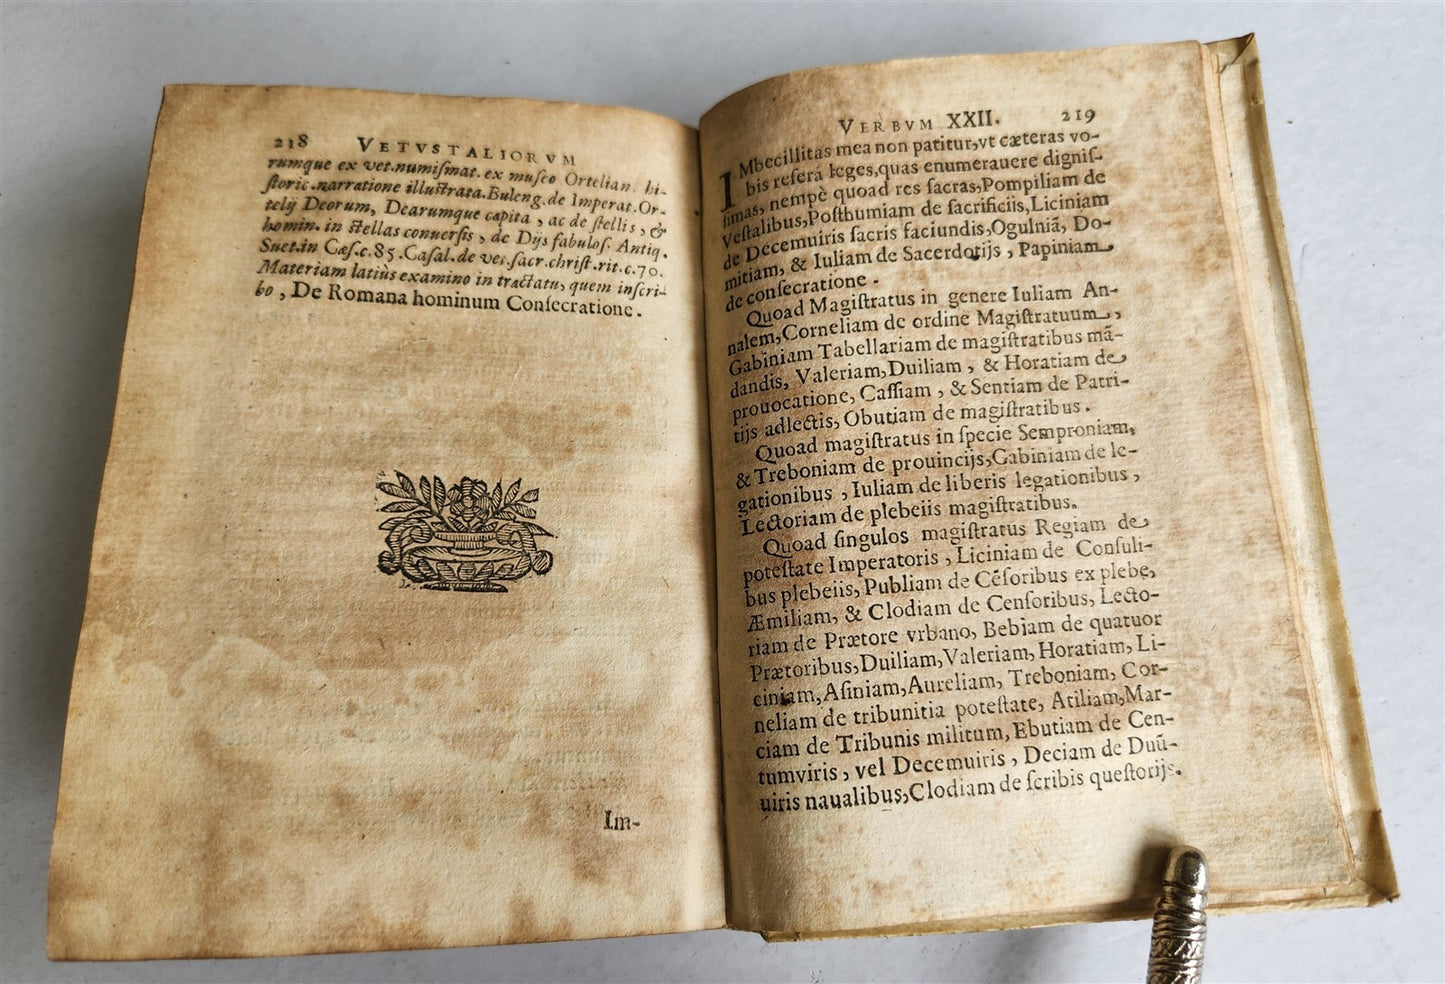 218 VETVSTALIORVM
rumque ex vet.numiſmat. ex muſeo Ortelian. hi-
ſtoric.narratione illuſtrata.Buleng.de Imperat.Or-
telij Deorum, Dearumque capita, ac de ſtellis, &
homin. in ſtellas conuerſis, de Dijs fabuloſ. Antiq.
Suet.in Cæſ.c.85.Caſal.de vet.ſacr.chriſt.rit.c.70.
Materiam latiùs examino in tractatu, quem inſcri-
bo, De Romana hominum Conſecratione.
Im-
VERBVM XXII. 219
IMbecillitas mea non patitur,vt cæteras vo-
bis referá leges,quas enumerauere digniſ-
ſimas, nempè quoad res ſacras,Pompiliam de
Veſtalibus,Poſthumiam de ſacrificiis,Liciniam
de Decemuiris ſacris faciundis,Ogulniã, Do-
mitiam, & Iuliam de Sacerdotijs, Papiniam
de conſecratione.
Quoad Magiſtratus in genere Iuliam An-
nalem,Corneliam de ordine Magiſtratuum,
Gabiniam Tabellariam de magiſtratibus mã-
dandis, Valeriam,Duiliam, & Horatiam de
prouocatione, Caſſiam, & Sentiam de Patri-
tijs adlectis, Obutiam de magiſtratibus.
Quoad magiſtratus in ſpecie Semproniam,
& Treboniam de prouincijs,Gabiniam de le-
gationibus, Iuliam de liberis legationibus,
Lectoriam de plebeiis magiſtratibus.
Quoad ſingulos magiſtratus Regiam de
poteſtate Imperatoris, Liciniam de Conſuli-
bus plebeiis, Publiam de Cẽſoribus ex plebe,
Æmiliam, & Clodiam de Cenſoribus, Lecto-
riam de Prætore vrbano, Bebiam de quatuor
Prætoribus,Duiliam,Valeriam, Horatiam, Li-
ciniam,Aſiniam,Aureliam, Treboniam, Cor-
neliam de tribunitia poteſtate, Atiliam,Mar-
ciam de Tribunis militum, Ebutiam de Cen-
tumviris, vel Decemuiris, Deciam de Duũ-
uiris naualibus,Clodiam de ſcribis queſtorijs.